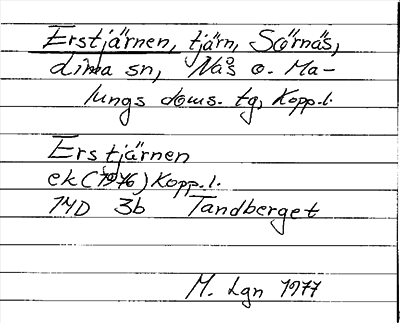 Erstjärnen, tjärn, Sörnäs,
Lima sn, Nås o. Ma-
lungs doms. tg, Kopp.l.
Erstjärnen
ek (1976) Kopp.l.
14D 3b Tandberget
M. Lgn 1977